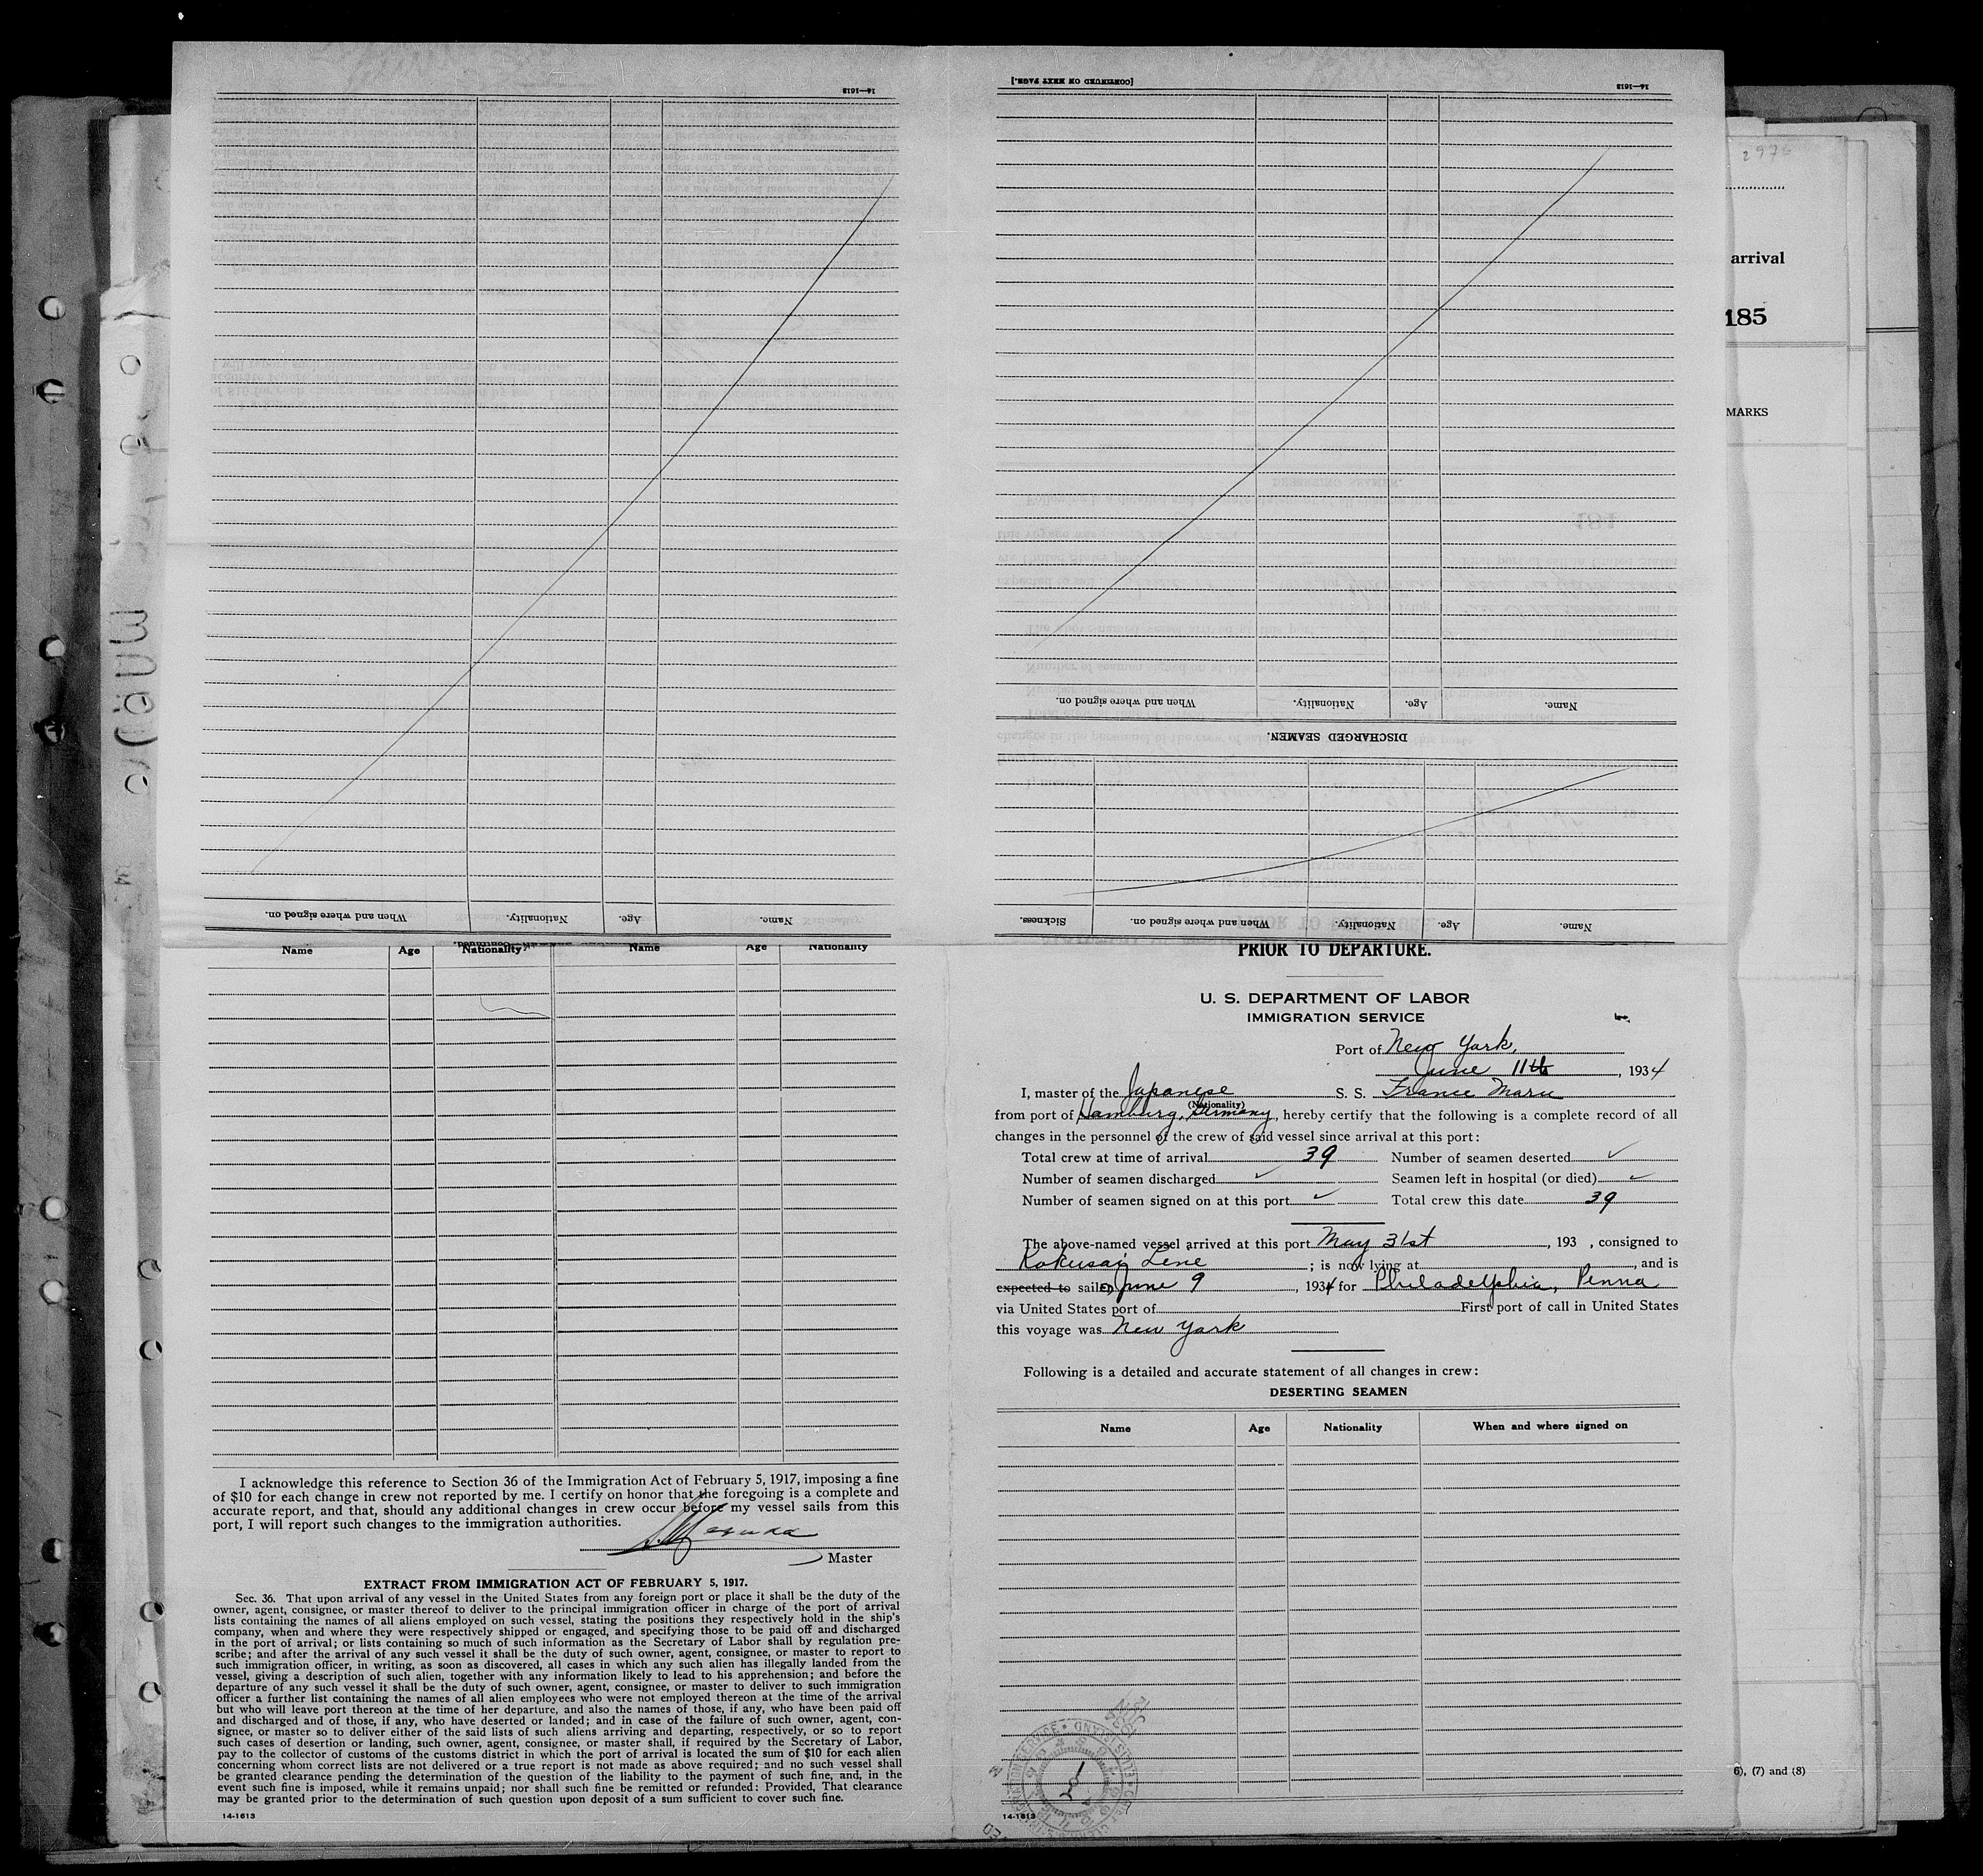 [CONTINUED ON NEXT PAGE.]
14—1613
14—1613
When and where signed on.
Nationality.
Age.
Name.
DISCHARGED SEAMEN.
Sickness.
When and where signed on.
Nationality.
Age.
Name.
When and where signed on.
Nationality.
Age.
Name.
2976
arrival
185
MARKS
6), (7) and (8)
Name Age Nationality Name Age Nationality
I acknowledge this reference to Section 36 of the Immigration Act of February 5, 1917, imposing a fine
of $10 for each change in crew not reported by me. I certify on honor that the foregoing is a complete and
accurate report, and that, should any additional changes in crew occur before my vessel sails from this
port, I will report such changes to the immigration authorities.
Master
EXTRACT FROM IMMIGRATION ACT OF FEBRUARY 5, 1917.
Sec. 36. That upon arrival of any vessel in the United States from any foreign port or place it shall be the duty of the
owner, agent, consignee, or master thereof to deliver to the principal immigration officer in charge of the port of arrival
lists containing the names of all aliens employed on such vessel, stating the positions they respectively hold in the ship's
company, when and where they were respectively shipped or engaged, and specifying those to be paid off and discharged
in the port of arrival; or lists containing so much of such information as the Secretary of Labor shall by regulation pre-
scribe; and after the arrival of any such vessel it shall be the duty of such owner, agent, consignee, or master to report to
such immigration officer, in writing, as soon as discovered, all cases in which any such alien has illegally landed from the
vessel, giving a description of such alien, together with any information likely to lead to his apprehension; and before the
departure of any such vessel it shall be the duty of such owner, agent, consignee, or master to deliver to such immigration
officer a further list containing the names of all alien employees who were not employed thereon at the time of the arrival
but who will leave port thereon at the time of her departure, and also the names of those, if any, who have been paid off
and discharged and of those, if any, who have deserted or landed; and in case of the failure of such owner, agent, con-
signee, or master so to deliver either of the said lists of such aliens arriving and departing, respectively, or so to report
such cases of desertion or landing, such owner, agent, consignee, or master shall, if required by the Secretary of Labor,
pay to the collector of customs of the customs district in which the port of arrival is located the sum of $10 for each alien
concerning whom correct lists are not delivered or a true report is not made as above required; and no such vessel shall
be granted clearance pending the determination of the question of the liability to the payment of such fine, and, in the
event such fine is imposed, while it remains unpaid; nor shall such fine be remitted or refunded: Provided, That clearance
may be granted prior to the determination of such question upon deposit of a sum sufficient to cover such fine.
14-1613
PRIOR TO DEPARTURE.
U. S. DEPARTMENT OF LABOR
IMMIGRATION SERVICE
Port of New York,
June 11th, 1934
I, master of the Japanese S. S. France Maru
(Nationality)
from port of Hamburg, Germany, hereby certify that the following is a complete record of all
changes in the personnel of the crew of said vessel since arrival at this port:
Total crew at time of arrival 39 Number of seamen deserted ✓
Number of seamen discharged ✓ Seamen left in hospital (or died) ✓
Number of seamen signed on at this port ✓ Total crew this date 39
The above-named vessel arrived at this port May 31st, 193 , consigned to
Kokusai Line; is now lying at , and is
expected to sailed June 9, 1934 for Philadelphia, Penna
via United States port of First port of call in United States
this voyage was New York
Following is a detailed and accurate statement of all changes in crew:
DESERTING SEAMEN
Name Age Nationality When and where signed on
14-1613